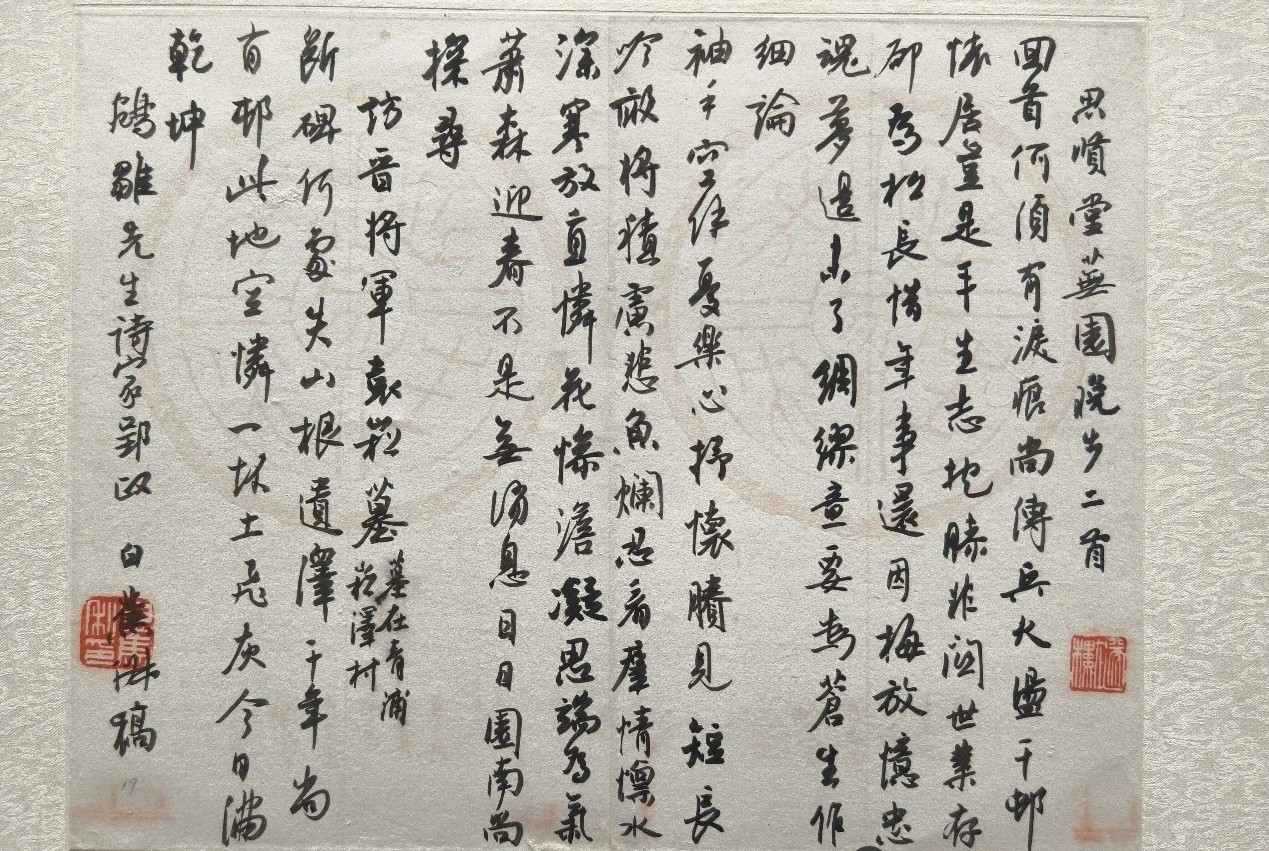 思賢堂蕪園晚步二首
回首何須有淚痕尚傳兵火盪千邨
恡居豈是平生志抱膝非關世業存
邵為松長惜年事還因梅放憶忠
魂夢邊未了綢繆意要與蒼生作
細論
袖手空作憂樂心抒懷賸見短長
吟儆將積慮悲魚爛忍看群情懍水
深寒放直憐花慘澹凝思端為氣
蕭森迎春不是無消息日日園南尚
探尋
訪晉將軍袁崧墓墓在青浦
崧澤村
斷碑何處失山根遺澤千年尚
有邨此地空憐一抔土飛灰今日滿
乾坤
鵷雛先生詩家郢政 白蕉 稿